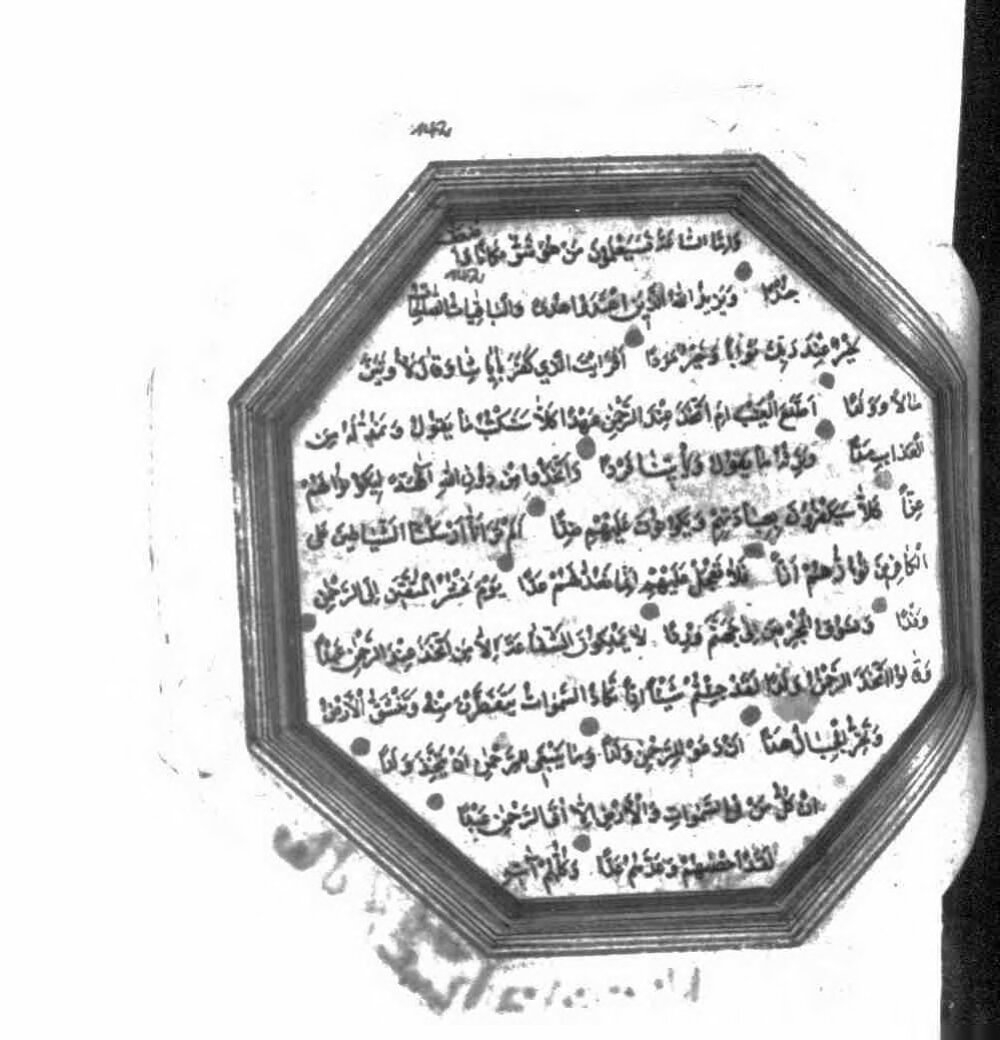 142
وَاِمَّا السَّاعَةَ فَسَيَعْلَمُونَ مَنْ هُوَ شَرٌّ مَكَانًا وَاَضْعَفُ
142
جُنْدًا وَيَزِيدُ اللهُ الَّذِينَ اهْتَدَوْا هُدًى وَالْبَاقِيَاتُ الصَّالِحَاتُ
خَيْرٌ عِنْدَ رَبِّكَ ثَوَابًا وَخَيْرٌ مَرَدًّا اَفَرَاَيْتَ الَّذِي كَفَرَ بِاٰيَاتِنَا وَقَالَ لَاُوتَيَنَّ
مَالًا وَوَلَدًا اَطَّلَعَ الْغَيْبَ اَمِ اتَّخَذَ عِنْدَ الرَّحْمٰنِ عَهْدًا كَلَّا سَنَكْتُبُ مَا يَقُولُ وَنَمُدُّ لَهُ مِنَ
الْعَذَابِ مَدًّا وَنَرِثُهُ مَا يَقُولُ وَيَأْتِينَا فَرْدًا وَاتَّخَذُوا مِنْ دُونِ اللهِ اٰلِهَةً لِيَكُونُوا لَهُمْ
عِزًّا كَلَّا سَيَكْفُرُونَ بِعِبَادَتِهِمْ وَيَكُونُونَ عَلَيْهِمْ ضِدًّا اَلَمْ تَرَ اَنَّا اَرْسَلْنَا الشَّيَاطِينَ عَلَى
الْكَافِرِينَ تَؤُزُّهُمْ اَزًّا فَلَا تَعْجَلْ عَلَيْهِمْ اِنَّمَا نَعُدُّ لَهُمْ عَدًّا يَوْمَ نَحْشُرُ الْمُتَّقِينَ اِلَى الرَّحْمٰنِ
وَفْدًا وَنَسُوقُ الْمُجْرِمِينَ اِلَى جَهَنَّمَ وِرْدًا لَا يَمْلِكُونَ الشَّفَاعَةَ اِلَّا مَنِ اتَّخَذَ عِنْدَ الرَّحْمٰنِ عَهْدًا
وَقَالُوا اتَّخَذَ الرَّحْمٰنُ وَلَدًا لَقَدْ جِئْتُمْ شَيْئًا اِدًّا تَكَادُ السَّمٰوَاتُ يَتَفَطَّرْنَ مِنْهُ وَتَنْشَقُّ الْاَرْضُ
وَتَخِرُّ الْجِبَالُ هَدًّا اَنْ دَعَوْا لِلرَّحْمٰنِ وَلَدًا وَمَا يَنْبَغِي لِلرَّحْمٰنِ اَنْ يَتَّخِذَ وَلَدًا
اِنْ كُلُّ مَنْ فِي السَّمٰوَاتِ وَالْاَرْضِ اِلَّا اٰتِي الرَّحْمٰنِ عَبْدًا
لَقَدْ اَحْصٰيهُمْ وَعَدَّهُمْ عَدًّا وَكُلُّهُمْ اٰتِيهِ